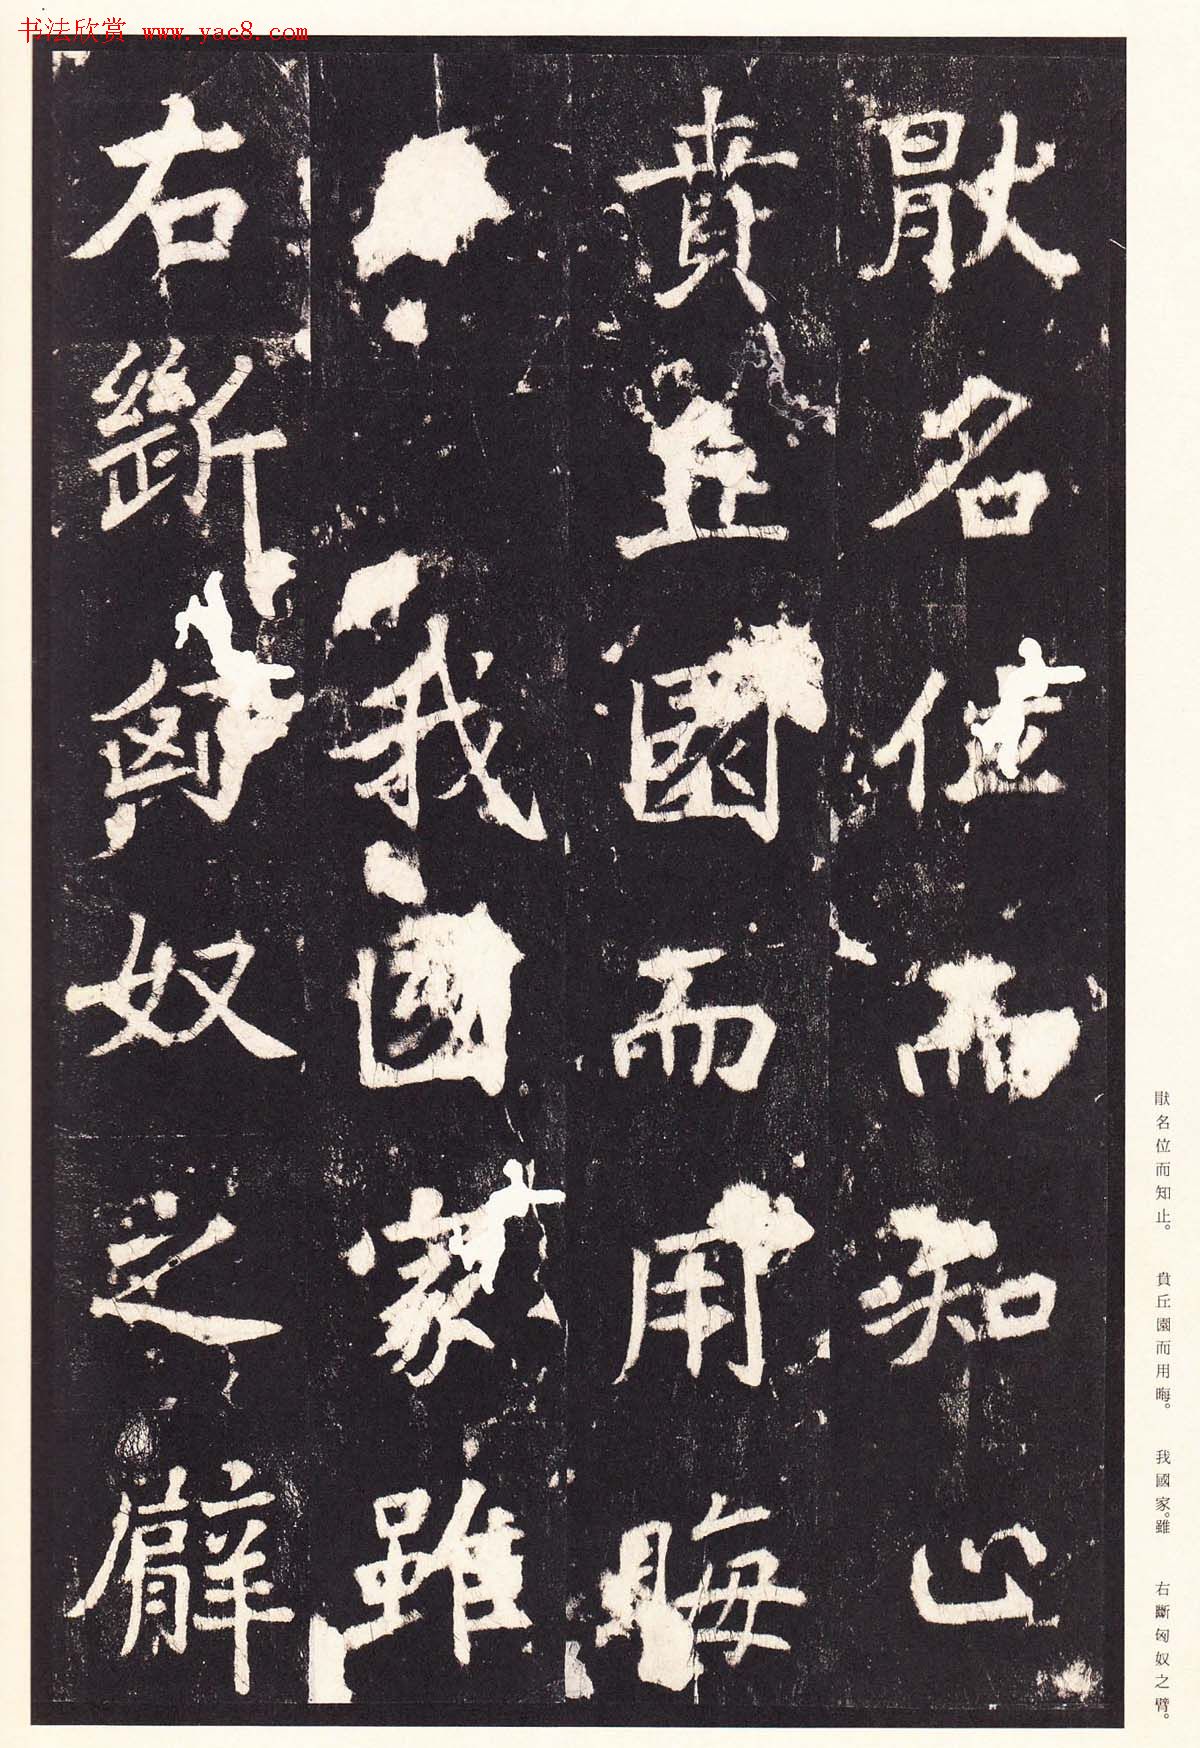 书法欣赏 www.yac8.com
猒名位而知止
賁丘園而用晦
我國家雖
右斷匈奴之臂
猒名位而知止。 賁丘園而用晦。 我國家。雖 右斷匈奴之臂。